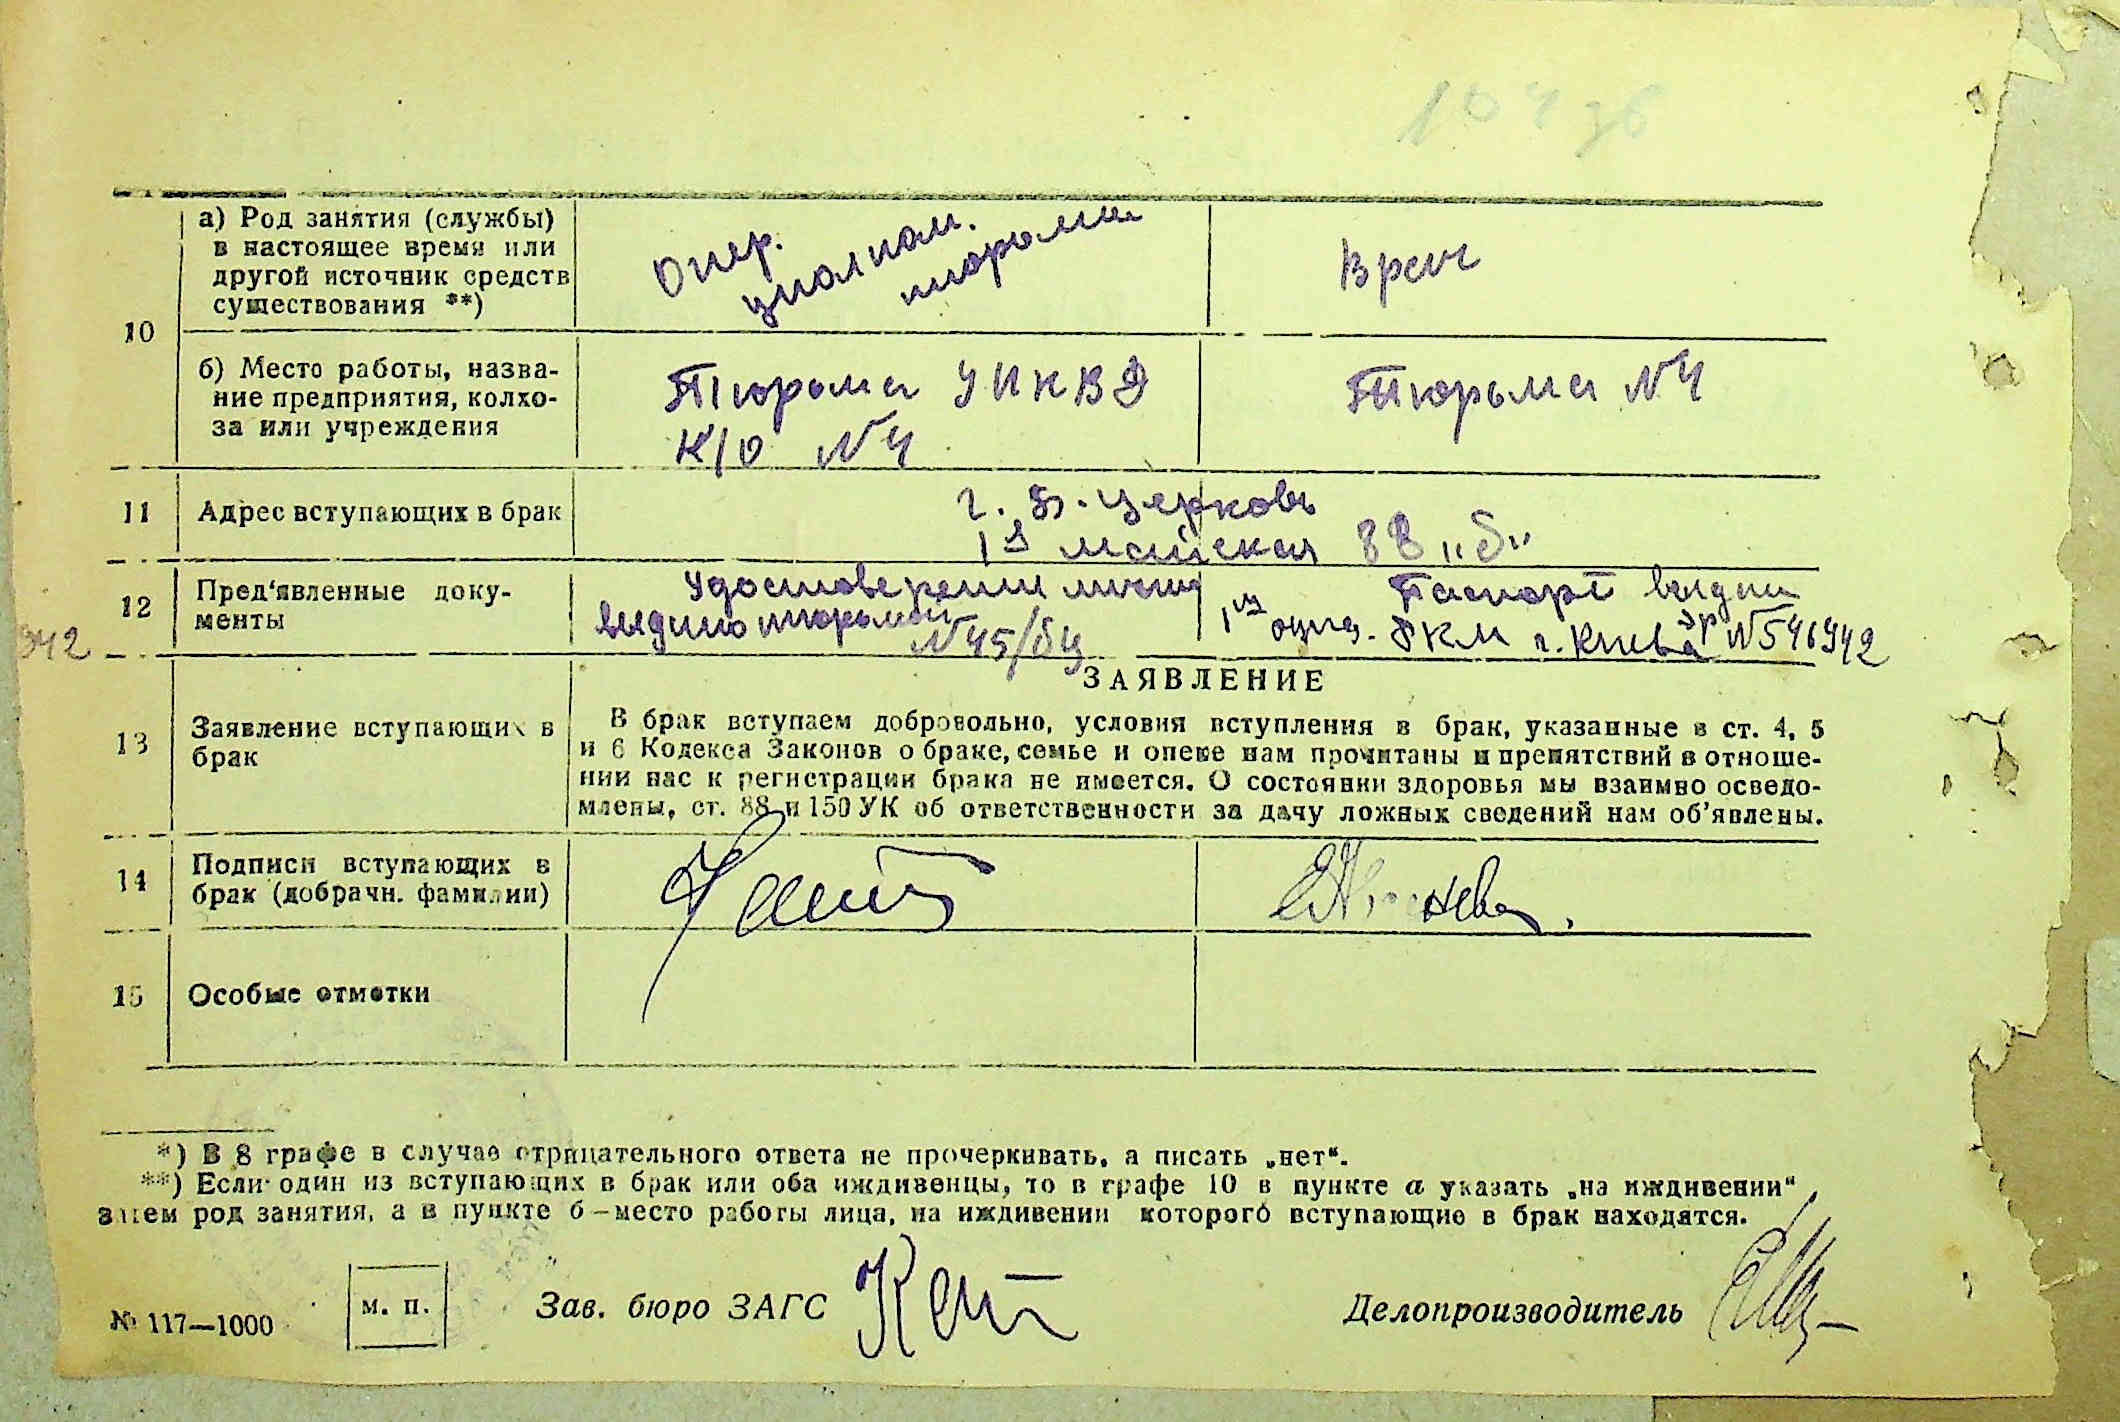 10
а) Род занятия (службы)
в настоящее время или
другой источник средств
существования **)
Опер.
тюрьмы
Врач
б) Место работы, назва-
ние предприятия, колхо-
за или учреждения
Тюрьма УНКВД
К/О № 4
Тюрьма № 4
11
Адрес вступающих в брак
г. Б. Церковь
1я майская 88 „б“
12
Пред'явленные доку-
менты
Удостоверении личн
выдано тюрьмой
№ 45/бц
Паспорт выдан
1м отд. РКМ г. Киева № 546942
942
13
Заявление вступающих в
брак
ЗАЯВЛЕНИЕ
В брак вступаем добровольно, условия вступления в брак, указанные в ст. 4, 5
и 6 Кодекса Законов о браке, семье и опеке нам прочитаны и препятствий в отноше-
нии нас к регистрации брака не имеется. О состоянии здоровья мы взаимно осведо-
млены, ст. 88 и 150 УК об ответственности за дачу ложных сведений нам об'явлены.
14
Подписи вступающих в
брак (добрачн. фамилии)
15
Особые отметки
*) В 8 графе в случае отрицательного ответа не прочеркивать, а писать „нет“.
**) Если один из вступающих в брак или оба иждивенцы, то в графе 10 в пункте а указать „на иждивении“,
затем род занятия, а в пункте б—место работы лица, на иждивении которого вступающие в брак находятся.
№ 117—1000
м. п.
Зав. бюро ЗАГС
Делопроизводитель